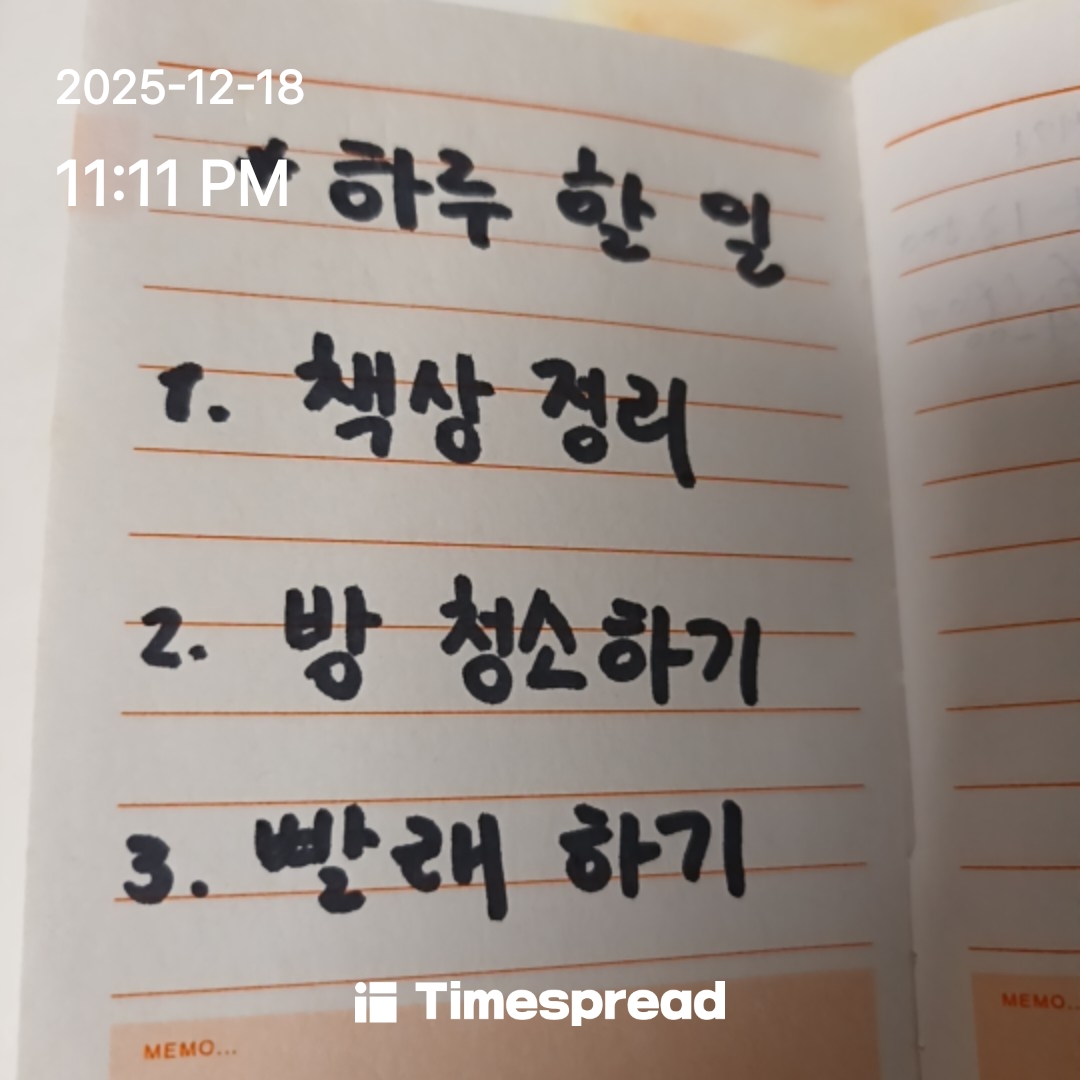 2025-12-18
11:11 PM
* 하루 할 일
1. 책상 정리
2. 방 청소하기
3. 빨래 하기
Timespread
MEMO...
MEMO...